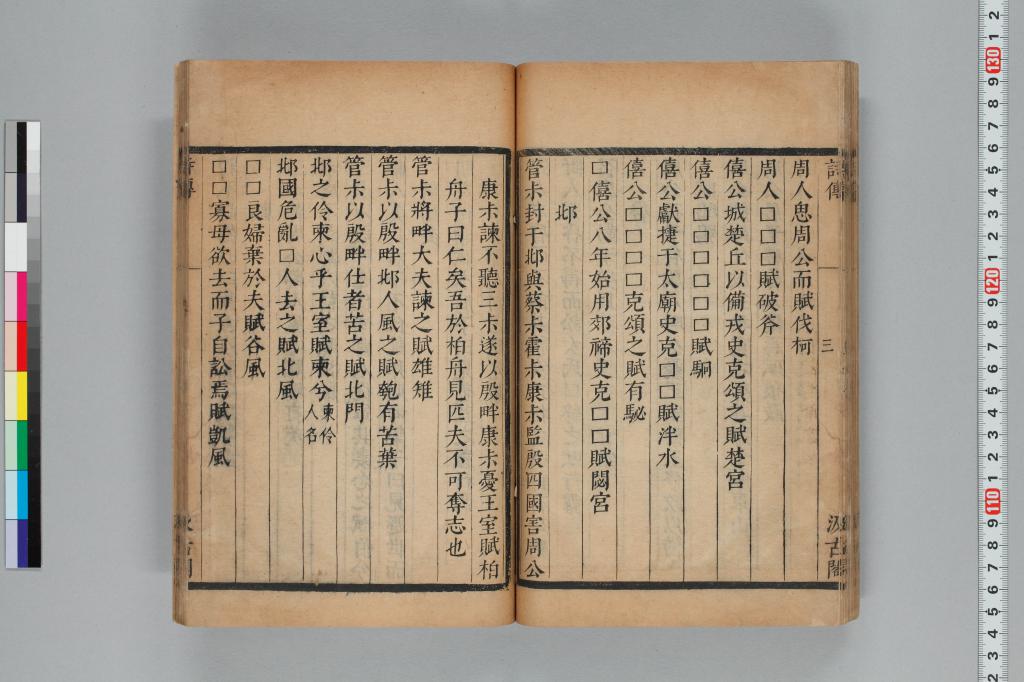 詩傳
三
汲古閣
周人思周公而賦伐柯
周人□□□賦破斧
僖公城楚丘以備戎史克頌之賦楚宮
僖公□□□□□□賦駉
僖公獻捷于太廟史克□□賦泮水
僖公□□□□克頌之賦有駜
□僖公八年始用郊禘史克□□賦閟宮
邶
管未封于邶與蔡未霍未康未監殷四國害周公
康未諫不聽三未遂以殷畔康未憂王室賦柏
舟子曰仁矣吾於柏舟見匹夫不可奪志也
管未將畔大夫諫之賦雄雉
管未以殷畔邶人風之賦匏有苦葉
管未以殷畔仕者苦之賦北門
邶之伶柬心乎王室賦柬兮柬伶人名
邶國危亂□人去之賦北風
□□艮婦棄於夫賦谷風
□□寡母欲去而子自訟焉賦凱風